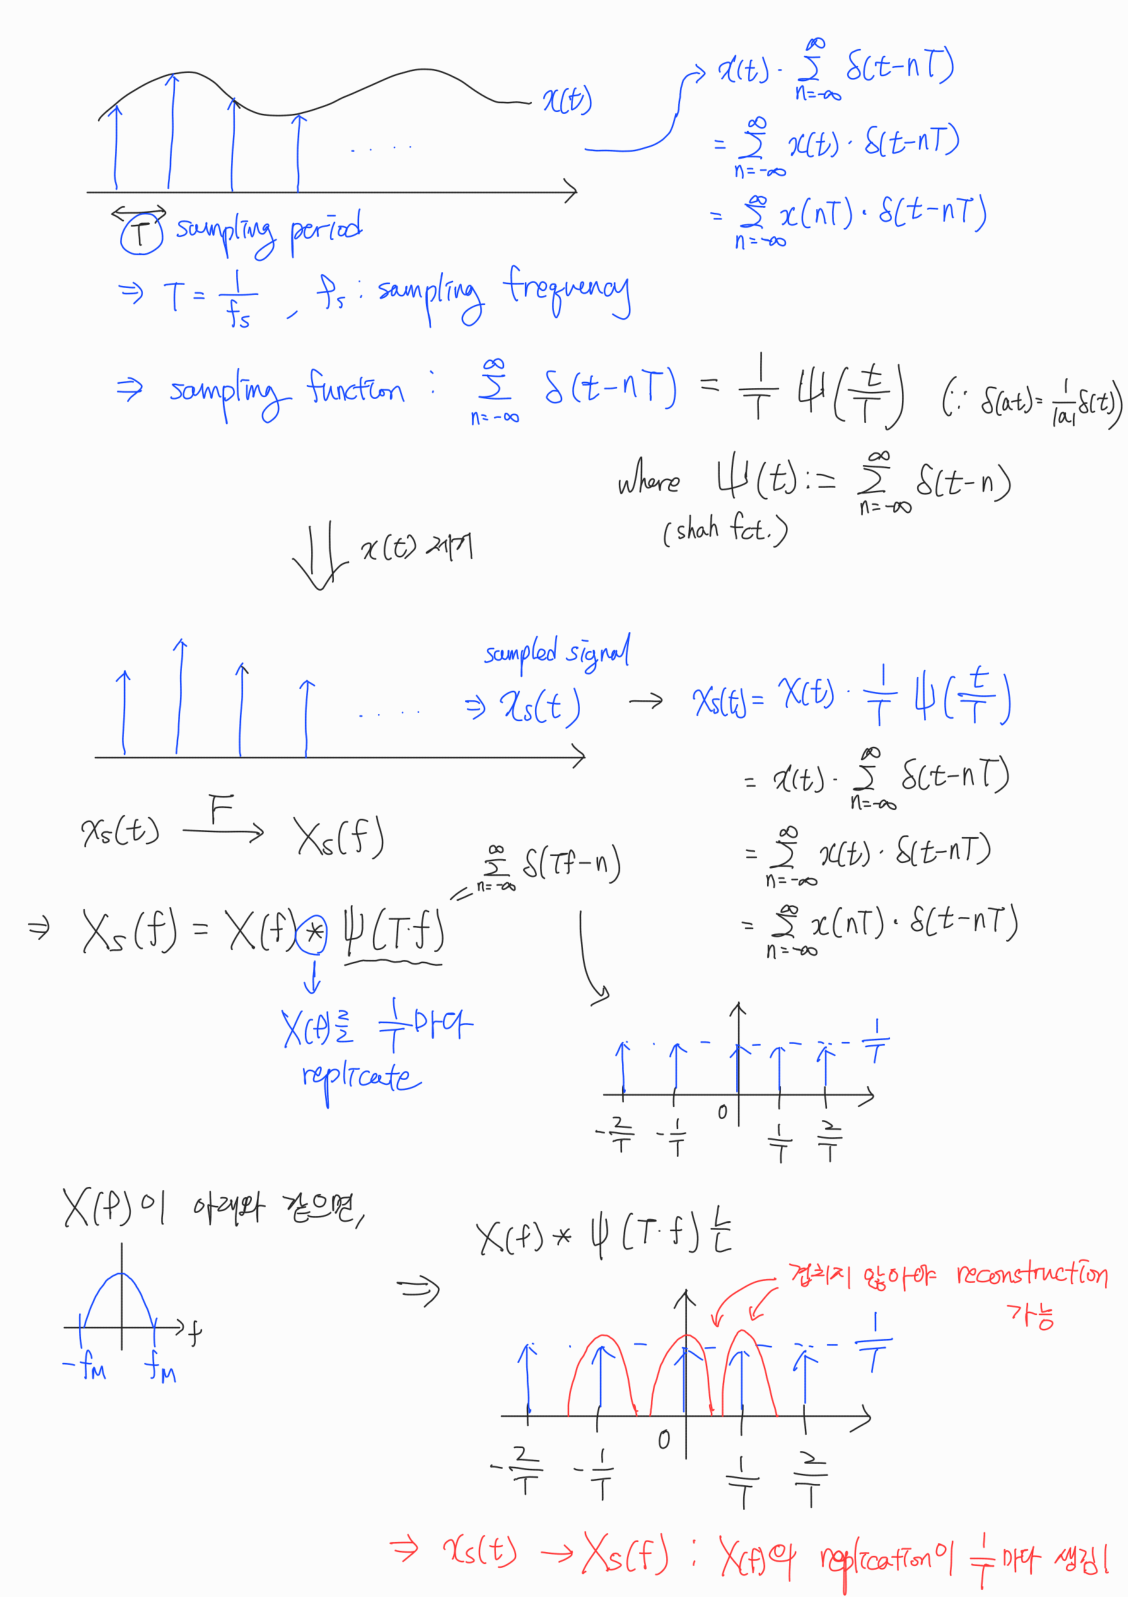 x(t)
x(t) · ∑_{n=-∞}^{∞} δ(t-nT)
= ∑_{n=-∞}^{∞} x(t) · δ(t-nT)
= ∑_{n=-∞}^{∞} x(nT) · δ(t-nT)
T sampling period
⇒ T = 1/fs , fs : sampling frequency
⇒ sampling function : ∑_{n=-∞}^{∞} δ(t-nT) = 1/T ψ(t/T) (∵ δ(at) = 1/|a| δ(t))
where ψ(t) := ∑_{n=-∞}^{∞} δ(t-n)
(shah fct.)
x(t) 제거
sampled signal
⇒ xs(t) → xs(t) = x(t) · 1/T ψ(t/T)
= x(t) · ∑_{n=-∞}^{∞} δ(t-nT)
= ∑_{n=-∞}^{∞} x(t) · δ(t-nT)
= ∑_{n=-∞}^{∞} x(nT) · δ(t-nT)
xs(t) F→ Xs(f)
= ∑_{n=-∞}^{∞} δ(Tf-n)
⇒ Xs(f) = X(f) * ψ(T·f)
X(f)를 1/T 마다
replicate
1/T
0
-2/T -1/T 1/T 2/T
X(f)이 아래와 같으면,
f
-fM fM
⇒
X(f) * ψ(T·f) 는
겹치지 않아야 reconstruction
가능
1/T
0
-2/T -1/T 1/T 2/T
⇒ xs(t) → Xs(f) : X(f)의 replication이 1/T 마다 생김!